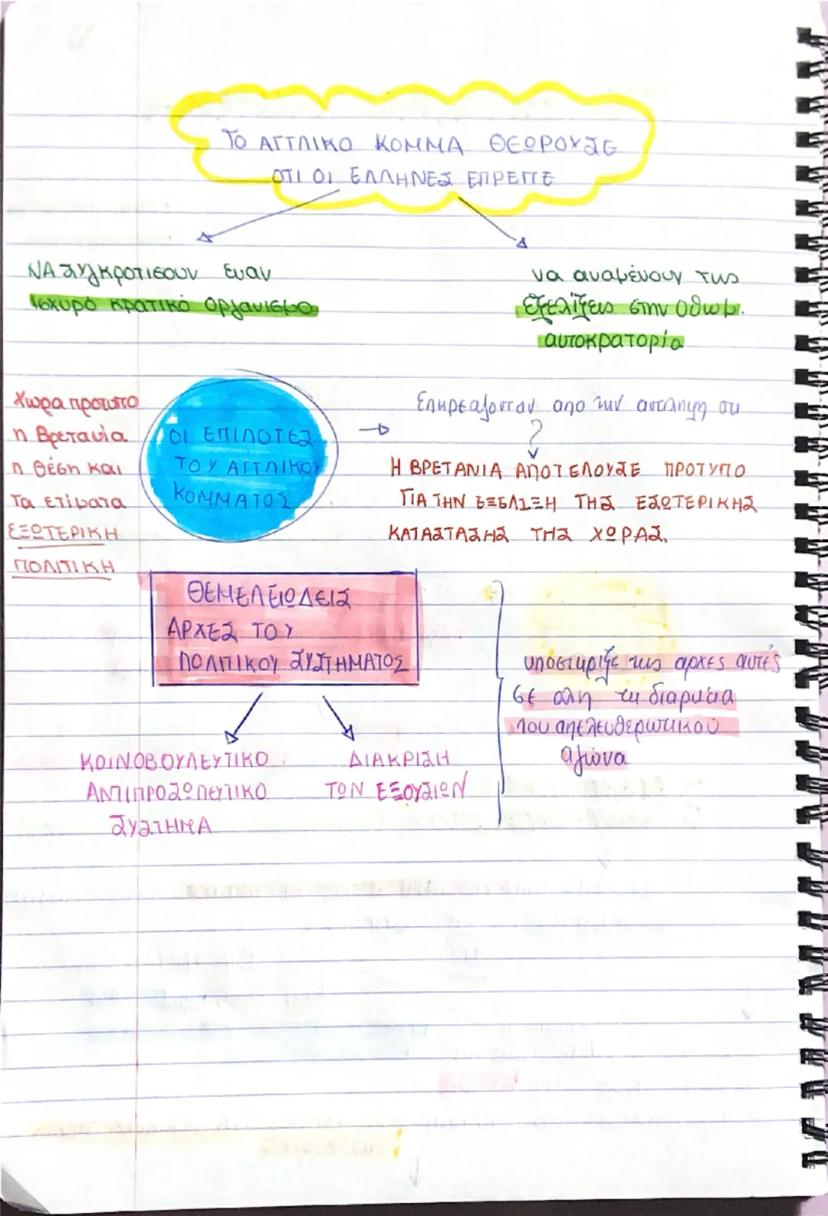 ΤΟ ΑΓΓΛΙΚΟ ΚΟΜΜΑ ΘΕΩΡΟΥΣΕ
ΟΤΙ ΟΙ ΕΛΛΗΝΕΣ ΕΠΡΕΠΕ
ΝΑ συγκροτισουν εναν
ισχυρό κρατικό οργανισμο
να αναμένουν τις
εξελίξεις στην οθωμ.
αυτοκρατορία
Χωρα προτυπο
η Βρετανία
η θέση και
τα ετίματα
ΕΞΩΤΕΡΙΚΗ
ΠΟΛΙΤΙΚΗ
ΟΙ ΕΠΙΛΟΓΕΣ
ΤΟΥ ΑΓΓΛΙΚΟΥ
ΚΟΜΜΑΤΟΣ
Επηρεαζονταν απο την αντιληψη οτι
Η ΒΡΕΤΑΝΙΑ ΑΠΟΤΕΛΟΥΣΕ ΠΡΟΤΥΠΟ
ΓΙΑ ΤΗΝ ΕΞΕΛΙΞΗ ΤΗΣ ΕΣΩΤΕΡΙΚΗΣ
ΚΑΤΑΣΤΑΣΗΣ ΤΗΣ ΧΩΡΑΣ.
ΘΕΜΕΛΕΙΩΔΕΙΣ
ΑΡΧΕΣ ΤΟΥ
ΠΟΛΙΤΙΚΟΥ ΣΥΣΤΗΜΑΤΟΣ
ΚΟΙΝΟΒΟΥΛΕΥΤΙΚΟ
ΑΝΤΙΠΡΟΣΩΠΕΥΤΙΚΟ
ΣΥΣΤΗΜΑ
ΔΙΑΚΡΙΣΗ
ΤΩΝ ΕΞΟΥΣΙΩΝ
υποστιριξε τις αρχες αυτές
σε ολη τη διαρκεια
του απελευθερωτικού
αγώνα